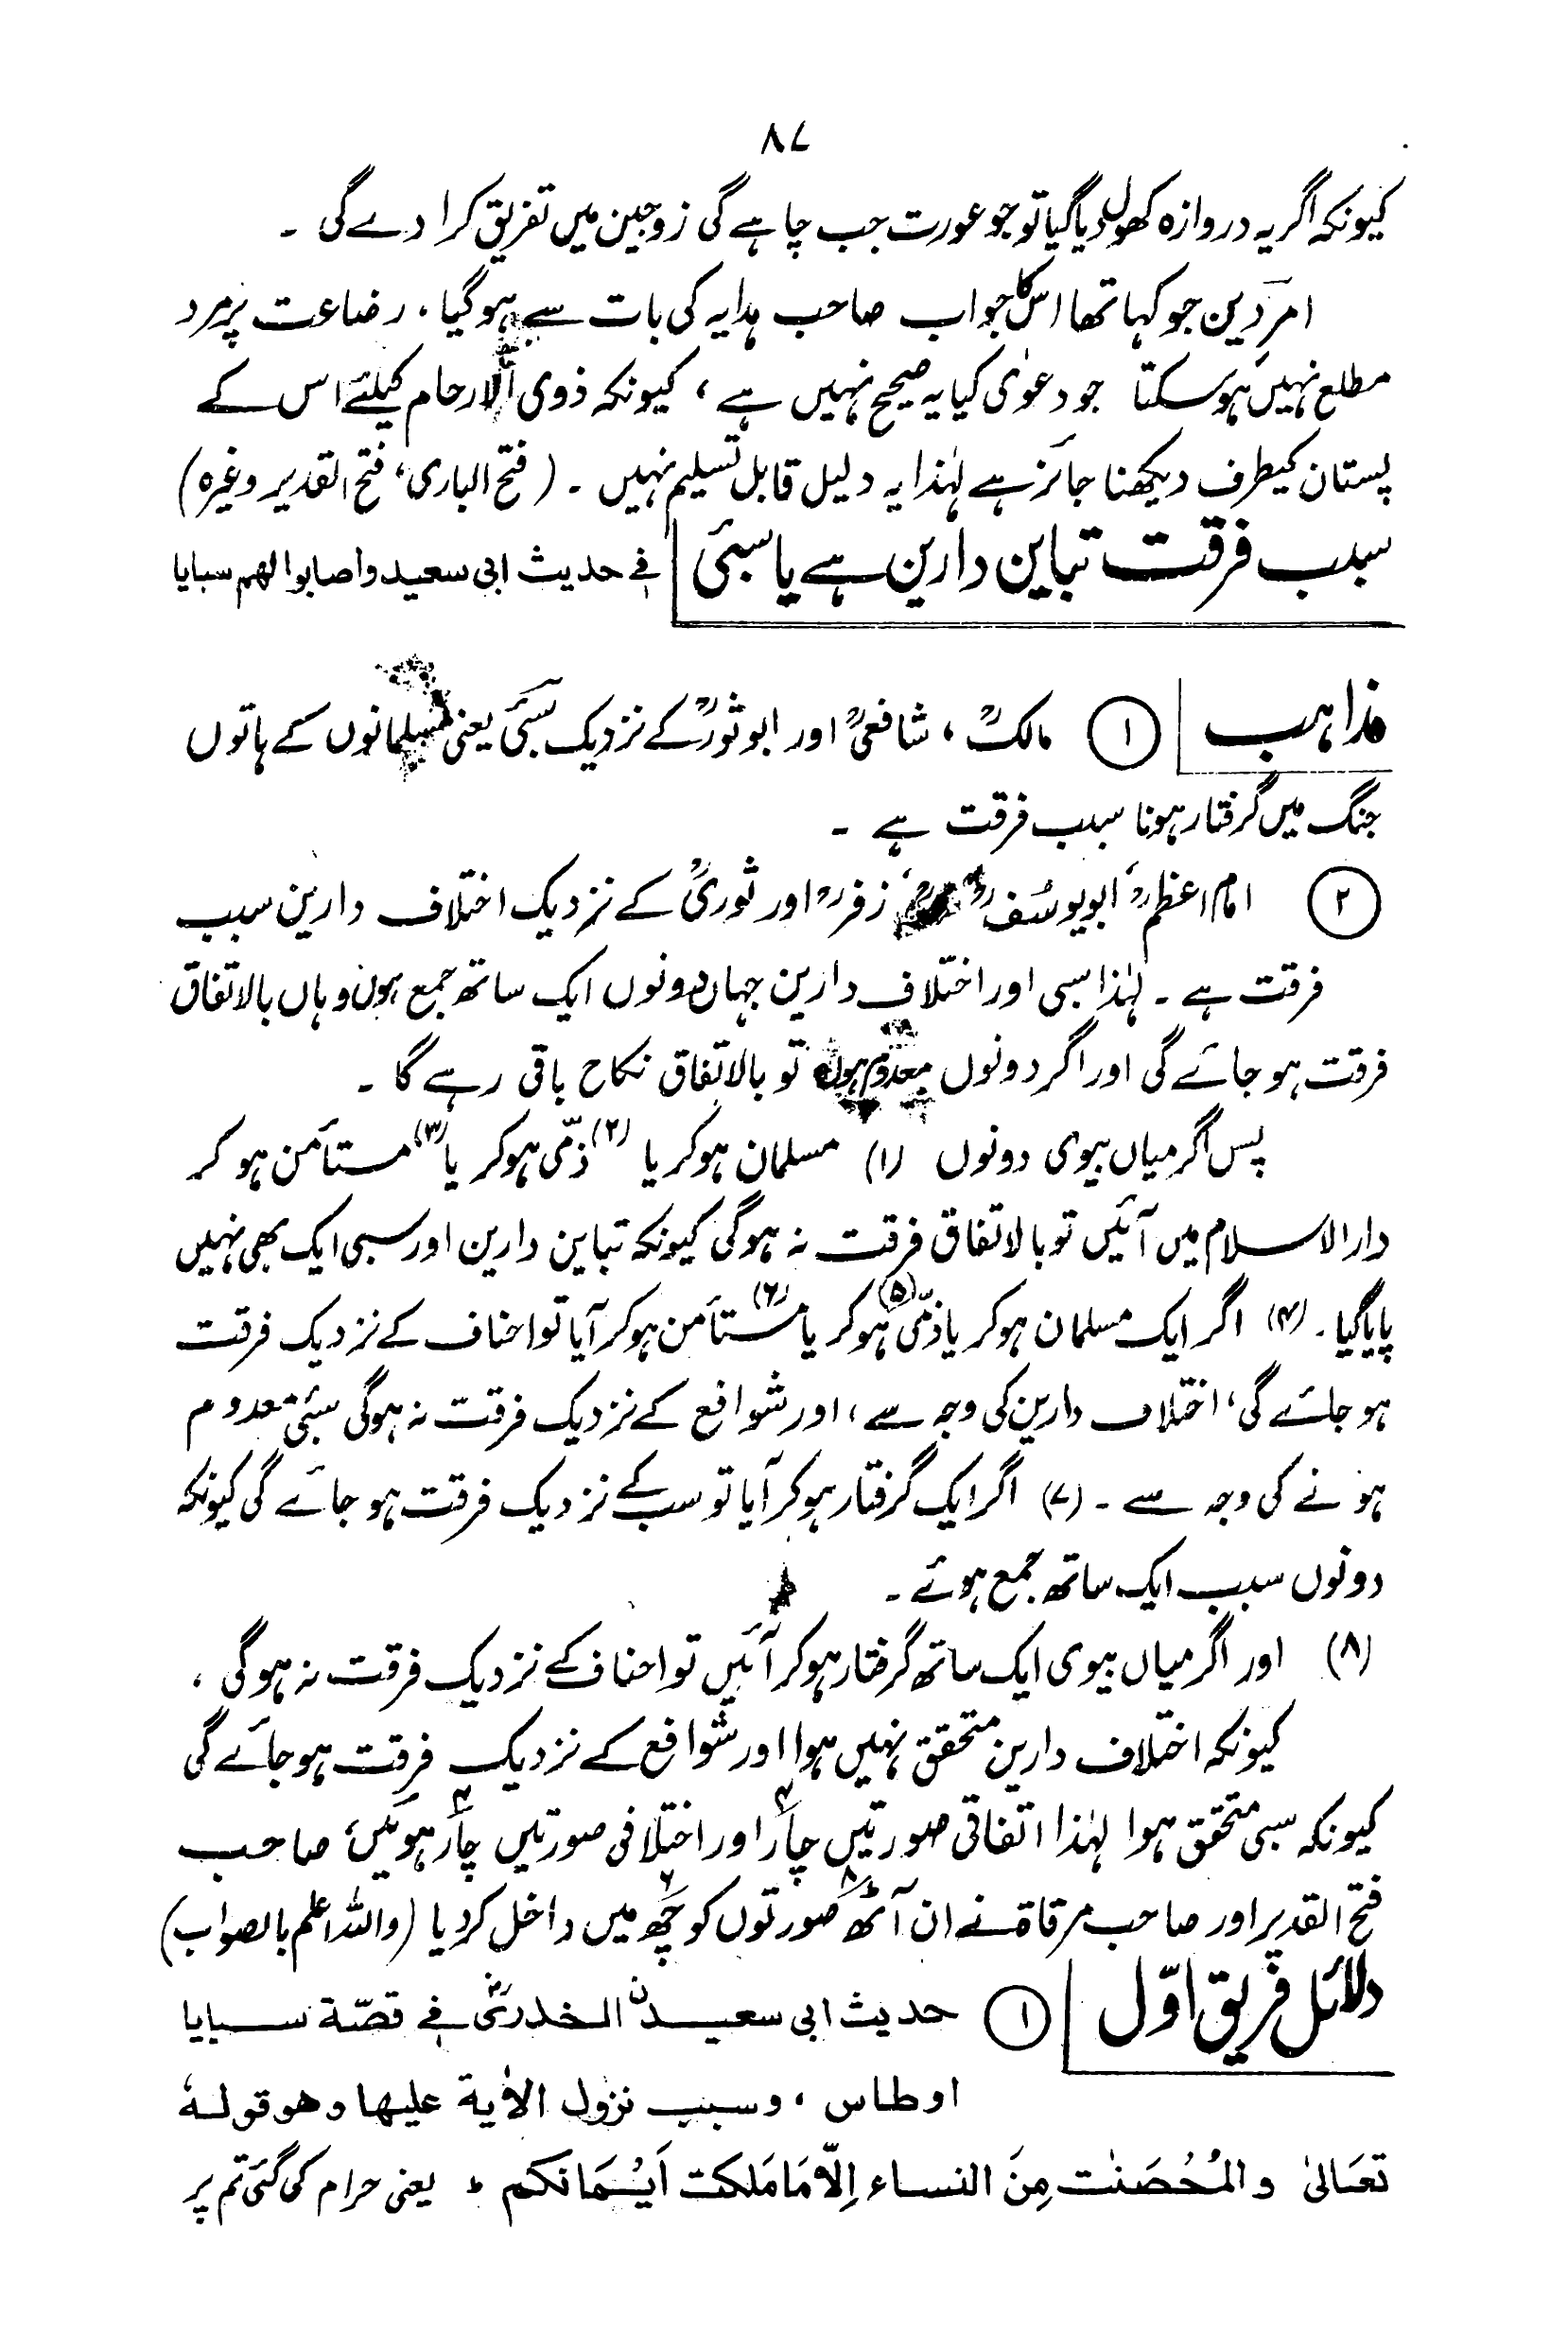 ۸۷
کیونکہ اگر یہ دروازہ کھول دیا گیا تو جو عورت جب چاہے گی زوجین میں تفریق کرا دے گی ۔
امر دین جو کہا تھا اس کا جواب صاحب ہدایہ کی بات سے ہوگیا ، رضاعت پر مرد
مطلع نہیں ہوسکتا جو دعوٰی کیا یہ صحیح نہیں ہے ، کیونکہ ذوی الارحام کیلئے اس کے
پستان کیطرف دیکھنا جائز ہے لہٰذا یہ دلیل قابل تسلیم نہیں ۔ ( فتح الباری ، فتح القدیر وغیرہ )
سبب فرقت تباین دارین ہے یا سبئی فی حدیث ابی سعید واصابوا لهم سبایا
مذاہب ① مالکؒ ، شافعیؒ اور ابو ثورؒ کے نزدیک سَبَیّ یعنی مسلمانوں کے ہاتوں
جنگ میں گرفتار ہونا سبب فرقت ہے ۔
② امام اعظمؒ ، ابویوسُفؒ زفرؒ اور ثوریؒ کے نزدیک اختلاف دارین سبب
فرقت ہے ۔ لہٰذا سبی اور اختلاف دارین جہاں دونوں ایک ساتھ جمع ہوں وہاں بالاتفاق
فرقت ہو جائے گی اور اگر دونوں معدوم ہوں تو بالاتفاق نکاح باقی رہے گا ۔
پس اگر میاں بیوی دونوں (۱) مسلمان ہوکر یا (۲) ذمّی ہوکر یا (۳) مستأمن ہو کر
دارالاسلام میں آئیں تو بالاتفاق فرقت نہ ہوگی کیونکہ تباین دارین اور سبی ایک بھی نہیں
پایا گیا ۔ (۴) اگر ایک مسلمان ہوکر یا (۵) ذمّی ہوکر یا (۶) مستأمن ہوکر آیا تو احناف کے نزدیک فرقت
ہو جائے گی ، اختلاف دارین کی وجہ سے ، اور شوافع کے نزدیک فرقت نہ ہوگی سبئی معدوم
ہونے کی وجہ سے ۔ (۷) اگر ایک گرفتار ہوکر آیا تو سب کے نزدیک فرقت ہو جائے گی کیونکہ
دونوں سبب ایک ساتھ جمع ہوئے ۔
(۸) اور اگر میاں بیوی ایک ساتھ گرفتار ہوکر آئیں تو احناف کے نزدیک فرقت نہ ہوگی ،
کیونکہ اختلاف دارین متحقق نہیں ہوا اور شوافع کے نزدیک فرقت ہوجائے گی
کیونکہ سبی متحقق ہوا لہٰذا اتفاقی صورتیں چار ۴ اور اختلافی صورتیں چار ۴ ہوئیں، صاحب
فتح القدیر اور صاحب مرقاۃ نے ان آٹھ ۸ صورتوں کو چھ ۶ میں داخل کردیا (واللہ اعلم بالصواب)
دلائل فریق اوّل ① حدیث ابی سعیدن الخدریؓ فی قصّة سبایا
اوطاس ، وسبب نزول الاٰیة علیها وهو قولهٗ
تعَالیٰ والمُحُصَنٰت مِنَ النساء اِلّا مَا مَلکت اَیُمَانکم ؕ یعنی حرام کی گئی تم پر